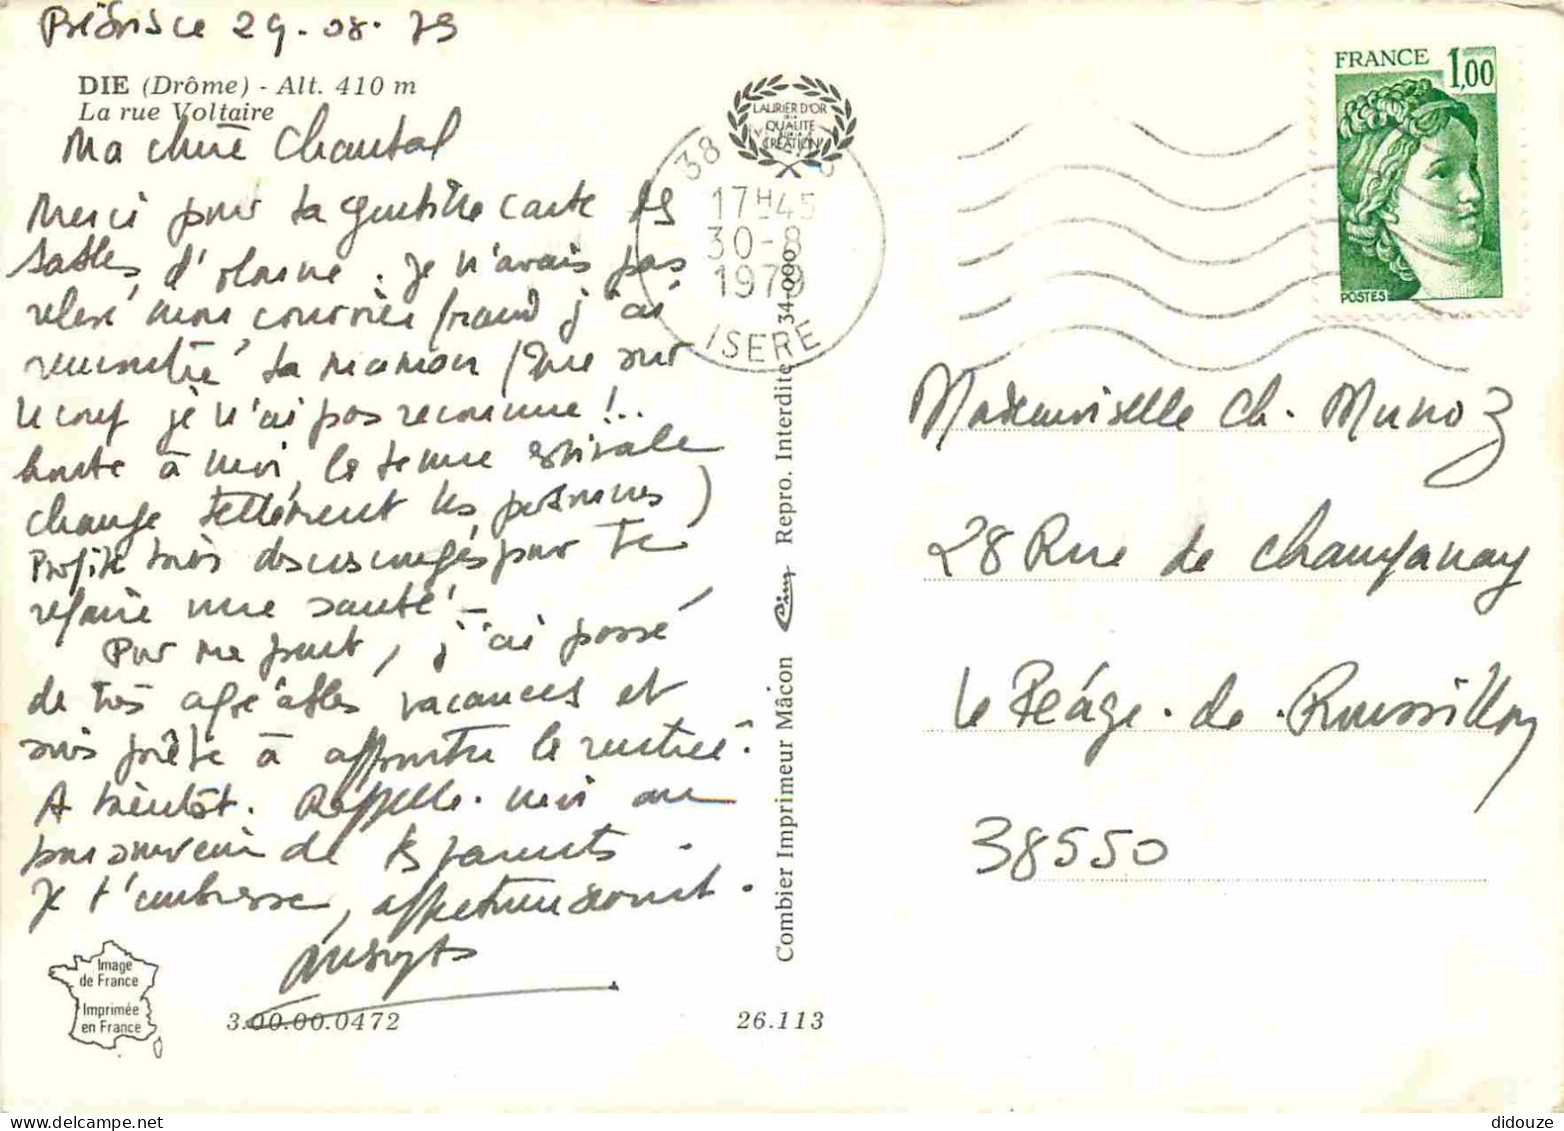 29-08-79
DIE (Drôme) - Alt. 410 m
La rue Voltaire
Ma chère Chantal
Merci pour ta gentille carte des
Sables d'olonne. Je n'avais pas
relevé mon courrier quand j'ai
rencontré ta maman (que sur
le coup je n'ai pas reconnue !..
honte à moi, la tenue estivale
change tellement les personnes)
Profite bien des congés pour te
refaire une santé! -
Pour ma part, j'ai passé
de très agréables vacances et
suis prête à affronter la rentrée.
A bientôt. Rappelle-moi au
bon souvenir de tes parents.
Je t'embrasse, affectueusement.
Image
de France
Imprimée
en France
3.00.00.0472
26.113
LAURIER D'OR
DE LA
QUALITÉ
CRÉATION
38
17H45
30-8
1979
ISERE
Combier Imprimeur Mâcon
Cim
Repro. Interdite
34-090
FRANCE 1,00
POSTES
Mademoiselle Ch. Munoz
28 Rue de Champanay
Le Péage-de-Roussillon
38550
didouze